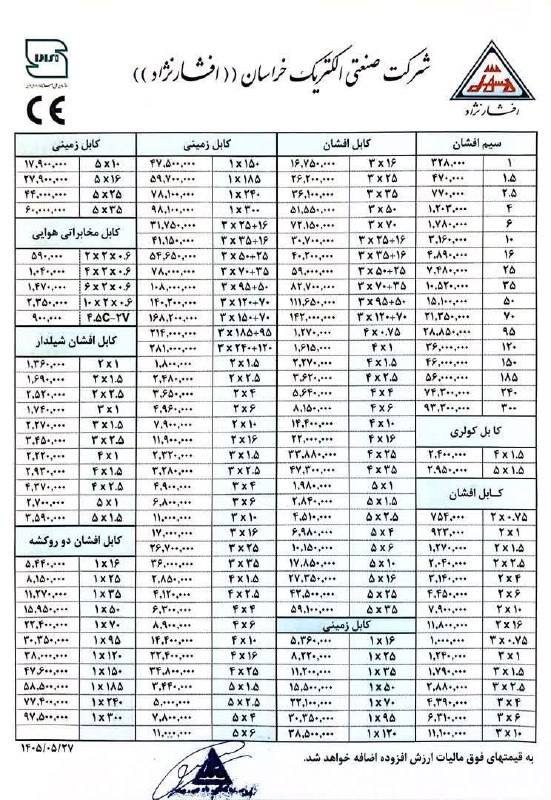 شرکت صنعتی الکتریک خراسان ((افشارنژاد))
افشارنژاد
CE
سیم افشان
۱ ۳۲۸,۰۰۰
۱.۵ ۴۷۰,۰۰۰
۲.۵ ۷۷۰,۰۰۰
۴ ۱,۲۰۳,۰۰۰
۶ ۱,۷۸۰,۰۰۰
۱۰ ۳,۱۶۰,۰۰۰
۱۶ ۴,۸۹۰,۰۰۰
۲۵ ۷,۴۸۰,۰۰۰
۳۵ ۱۰,۵۲۰,۰۰۰
۵۰ ۱۵,۱۰۰,۰۰۰
۷۰ ۲۱,۳۵۰,۰۰۰
۹۵ ۲۸,۸۵۰,۰۰۰
۱۲۰ ۳۶,۰۰۰,۰۰۰
۱۵۰ ۴۶,۰۰۰,۰۰۰
۱۸۵ ۵۶,۰۰۰,۰۰۰
۲۴۰ ۷۴,۳۰۰,۰۰۰
۳۰۰ ۹۳,۳۰۰,۰۰۰
کابل کولری
۴ x ۱.۵ ۲,۴۰۰,۰۰۰
۵ x ۱.۵ ۲,۹۵۰,۰۰۰
کابل افشان
۲ x ۰.۷۵ ۷۵۴,۰۰۰
۲ x ۱ ۹۲۳,۰۰۰
۲ x ۱.۵ ۱,۲۷۰,۰۰۰
۲ x ۲.۵ ۲,۰۴۰,۰۰۰
۲ x ۴ ۳,۱۴۰,۰۰۰
۲ x ۶ ۴,۴۵۰,۰۰۰
۲ x ۱۰ ۷,۹۰۰,۰۰۰
۲ x ۱۶ ۱۱,۸۰۰,۰۰۰
۳ x ۰.۷۵ ۱,۰۰۰,۰۰۰
۳ x ۱ ۱,۲۴۰,۰۰۰
۳ x ۱.۵ ۱,۷۹۰,۰۰۰
۳ x ۲.۵ ۲,۸۸۰,۰۰۰
۳ x ۴ ۴,۳۹۰,۰۰۰
۳ x ۶ ۶,۳۱۰,۰۰۰
۳ x ۱۰ ۱۱,۱۰۰,۰۰۰
کابل افشان
۳ x ۱۶ ۱۶,۷۵۰,۰۰۰
۳ x ۲۵ ۲۶,۲۰۰,۰۰۰
۳ x ۳۵ ۳۶,۱۰۰,۰۰۰
۳ x ۵۰ ۵۱,۵۵۰,۰۰۰
۳ x ۷۰ ۷۲,۱۵۰,۰۰۰
۳ x ۲۵+۱۶ ۳۰,۷۰۰,۰۰۰
۳ x ۳۵+۱۶ ۴۰,۲۰۰,۰۰۰
۳ x ۵۰+۲۵ ۵۹,۰۰۰,۰۰۰
۳ x ۷۰+۳۵ ۸۲,۷۰۰,۰۰۰
۳ x ۹۵+۵۰ ۱۱۱,۶۵۰,۰۰۰
۳ x ۱۲۰+۷۰ ۱۴۲,۰۰۰,۰۰۰
۴ x ۰.۷۵ ۱,۲۷۰,۰۰۰
۴ x ۱ ۱,۶۱۵,۰۰۰
۴ x ۱.۵ ۲,۲۷۰,۰۰۰
۴ x ۲.۵ ۳,۶۲۰,۰۰۰
۴ x ۴ ۵,۶۴۰,۰۰۰
۴ x ۶ ۸,۱۵۰,۰۰۰
۴ x ۱۰ ۱۴,۴۰۰,۰۰۰
۴ x ۱۶ ۲۲,۰۰۰,۰۰۰
۴ x ۲۵ ۳۳,۸۸۰,۰۰۰
۴ x ۳۵ ۴۷,۳۰۰,۰۰۰
۵ x ۱ ۱,۹۸۰,۰۰۰
۵ x ۱.۵ ۲,۸۴۰,۰۰۰
۵ x ۲.۵ ۴,۵۱۰,۰۰۰
۵ x ۴ ۶,۹۸۰,۰۰۰
۵ x ۶ ۱۰,۱۵۰,۰۰۰
۵ x ۱۰ ۱۷,۸۵۰,۰۰۰
۵ x ۱۶ ۲۷,۳۵۰,۰۰۰
۵ x ۲۵ ۴۲,۵۰۰,۰۰۰
۵ x ۳۵ ۵۹,۱۰۰,۰۰۰
کابل زمینی
۱ x ۱۶ ۵,۳۶۰,۰۰۰
۱ x ۲۵ ۸,۲۲۰,۰۰۰
۱ x ۳۵ ۱۱,۲۰۰,۰۰۰
۱ x ۵۰ ۱۵,۵۰۰,۰۰۰
۱ x ۷۰ ۲۲,۱۰۰,۰۰۰
۱ x ۹۵ ۳۰,۳۵۰,۰۰۰
۱ x ۱۲۰ ۳۸,۵۰۰,۰۰۰
کابل زمینی
۱ x ۱۵۰ ۴۷,۵۰۰,۰۰۰
۱ x ۱۸۵ ۵۹,۷۰۰,۰۰۰
۱ x ۲۴۰ ۷۸,۱۰۰,۰۰۰
۱ x ۳۰۰ ۹۸,۱۰۰,۰۰۰
۳ x ۲۵+۱۶ ۳۱,۷۵۰,۰۰۰
۳ x ۳۵+۱۶ ۴۱,۱۵۰,۰۰۰
۳ x ۵۰+۲۵ ۵۴,۶۵۰,۰۰۰
۳ x ۷۰+۳۵ ۷۸,۰۰۰,۰۰۰
۳ x ۹۵+۵۰ ۱۰۸,۰۰۰,۰۰۰
۳ x ۱۲۰+۷۰ ۱۴۰,۳۰۰,۰۰۰
۳ x ۱۵۰+۷۰ ۱۶۸,۲۰۰,۰۰۰
۳ x ۱۸۵+۹۵ ۳۱۴,۰۰۰,۰۰۰
۳ x ۲۴۰+۱۲۰ ۳۸۱,۰۰۰,۰۰۰
۲ x ۱.۵ ۱,۸۰۰,۰۰۰
۲ x ۲.۵ ۲,۴۸۰,۰۰۰
۲ x ۴ ۳,۶۵۰,۰۰۰
۲ x ۶ ۴,۹۶۰,۰۰۰
۲ x ۱۰ ۷,۹۰۰,۰۰۰
۲ x ۱۶ ۱۱,۹۰۰,۰۰۰
۳ x ۱.۵ ۲,۳۲۰,۰۰۰
۳ x ۲.۵ ۳,۲۸۰,۰۰۰
۳ x ۴ ۴,۹۰۰,۰۰۰
۳ x ۶ ۶,۸۰۰,۰۰۰
۳ x ۱۰ ۱۱,۰۰۰,۰۰۰
۳ x ۱۶ ۱۷,۰۰۰,۰۰۰
۳ x ۲۵ ۲۶,۷۰۰,۰۰۰
۳ x ۳۵ ۳۶,۰۰۰,۰۰۰
۴ x ۱.۵ ۲,۸۵۰,۰۰۰
۴ x ۲.۵ ۴,۱۲۰,۰۰۰
۴ x ۴ ۶,۳۰۰,۰۰۰
۴ x ۶ ۸,۹۰۰,۰۰۰
۴ x ۱۰ ۱۴,۴۰۰,۰۰۰
۴ x ۱۶ ۲۲,۴۰۰,۰۰۰
۴ x ۲۵ ۳۴,۸۰۰,۰۰۰
۵ x ۱.۵ ۳,۴۴۰,۰۰۰
۵ x ۲.۵ ۵,۰۰۰,۰۰۰
۵ x ۴ ۷,۸۰۰,۰۰۰
۵ x ۶ ۱۱,۰۰۰,۰۰۰
کابل زمینی
۵ x ۱۰ ۱۷,۹۰۰,۰۰۰
۵ x ۱۶ ۲۷,۹۰۰,۰۰۰
۵ x ۲۵ ۴۴,۰۰۰,۰۰۰
۵ x ۳۵ ۶۰,۰۰۰,۰۰۰
کابل مخابراتی هوایی
۲ x ۲ x ۰.۶ ۵۹۰,۰۰۰
۴ x ۲ x ۰.۶ ۱,۰۴۰,۰۰۰
۶ x ۲ x ۰.۶ ۱,۴۷۰,۰۰۰
۱۰ x ۲ x ۰.۶ ۲,۳۵۰,۰۰۰
۴.۵C-۲V ۹۰۰,۰۰۰
کابل افشان شیلدار
۲ x ۱ ۱,۳۶۰,۰۰۰
۲ x ۱.۵ ۱,۶۹۰,۰۰۰
۲ x ۲.۵ ۲,۵۲۰,۰۰۰
۳ x ۱ ۱,۷۴۰,۰۰۰
۳ x ۱.۵ ۲,۲۷۰,۰۰۰
۳ x ۲.۵ ۳,۴۵۰,۰۰۰
۴ x ۱ ۲,۲۲۰,۰۰۰
۴ x ۱.۵ ۲,۹۳۰,۰۰۰
۴ x ۲.۵ ۴,۳۷۰,۰۰۰
۵ x ۱ ۲,۷۰۰,۰۰۰
۵ x ۱.۵ ۳,۵۹۰,۰۰۰
کابل افشان دو روکشه
۱ x ۱۶ ۵,۴۴۰,۰۰۰
۱ x ۲۵ ۸,۱۵۰,۰۰۰
۱ x ۳۵ ۱۱,۲۷۰,۰۰۰
۱ x ۵۰ ۱۵,۹۵۰,۰۰۰
۱ x ۷۰ ۲۲,۴۰۰,۰۰۰
۱ x ۹۵ ۳۰,۳۵۰,۰۰۰
۱ x ۱۲۰ ۳۸,۰۰۰,۰۰۰
۱ x ۱۵۰ ۴۷,۶۰۰,۰۰۰
۱ x ۱۸۵ ۵۸,۵۰۰,۰۰۰
۱ x ۲۴۰ ۷۷,۴۰۰,۰۰۰
۱ x ۳۰۰ ۹۷,۵۰۰,۰۰۰
به قیمتهای فوق مالیات ارزش افزوده اضافه خواهد شد.
۱۴۰۵/۰۵/۲۷